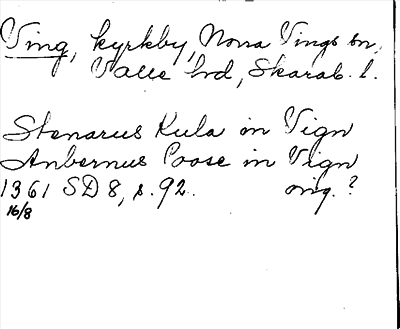 Ving, kyrkby, Norra Vings sn,
Valle hd, Skarab. l.
Stenarus Kula in Vign
Anbernus Poose in Vign
1361 SD 8, s. 92. orig.?
16/8